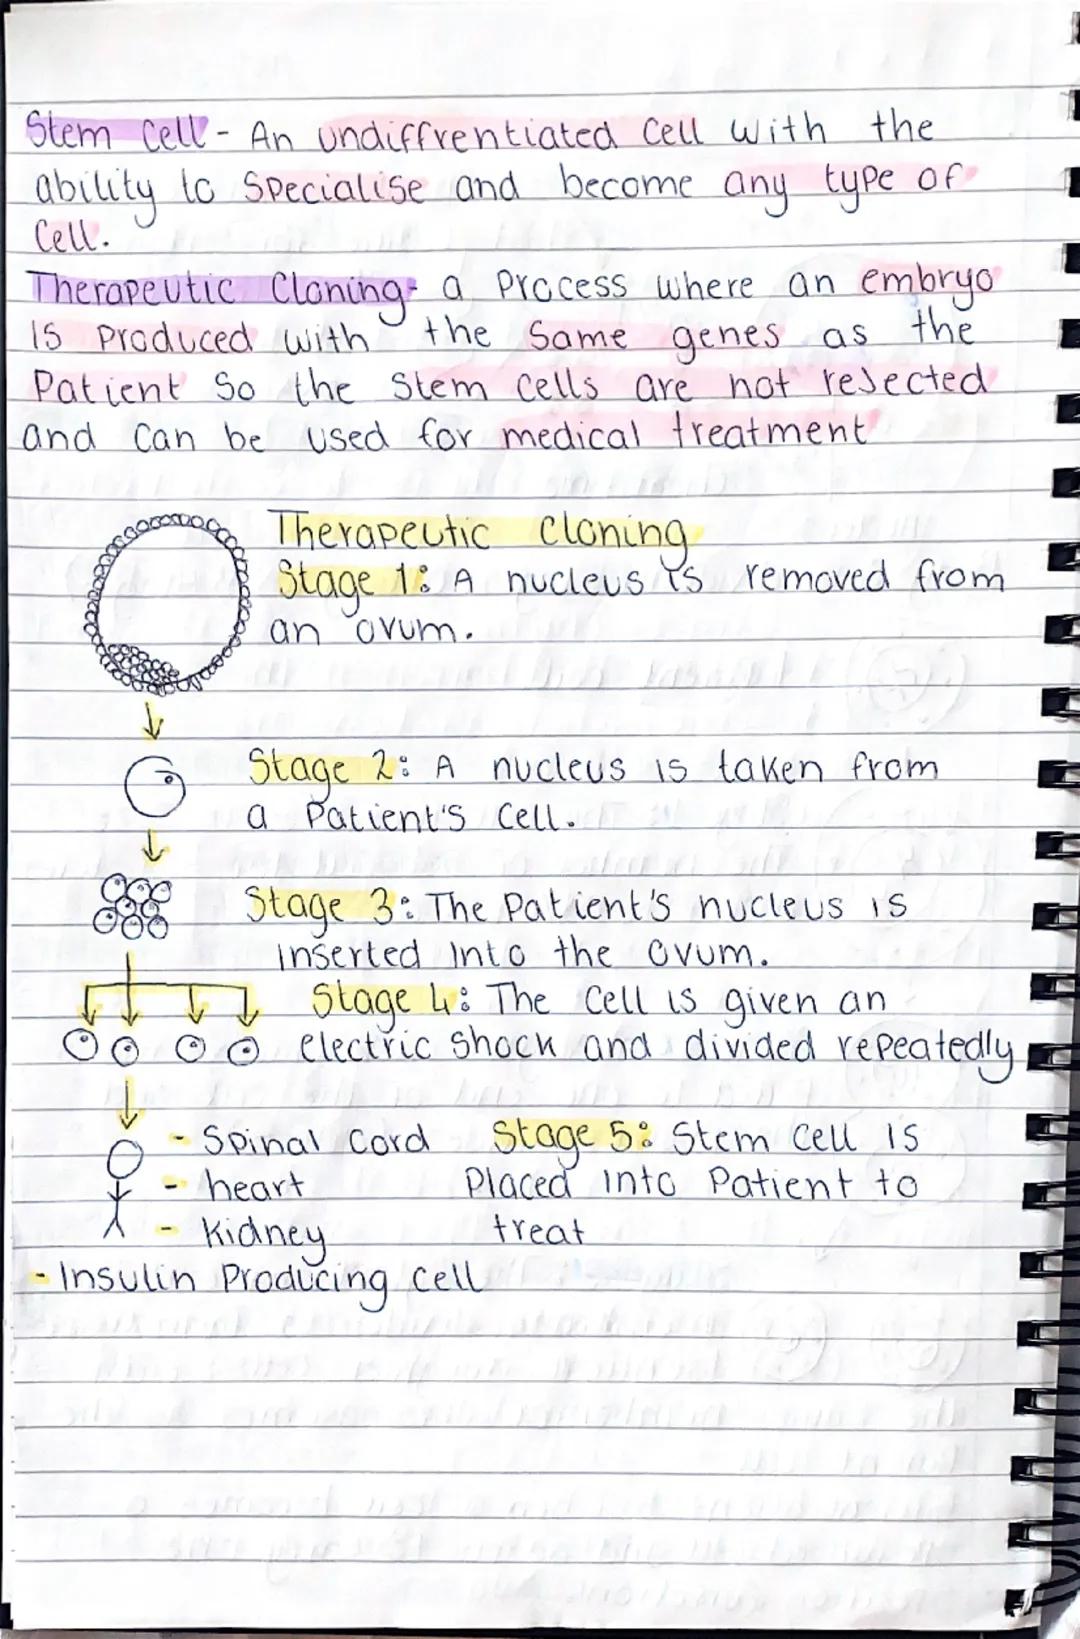 Stem Cell - An undiffrentiated Cell with the
ability to Specialise and become any type of
Cell.
Therapeutic Cloning- a Process where an embryo
is Produced with the Same genes as the
Patient So the Stem Cells are not rejected
and Can be used for medical treatment
Therapeutic Cloning
Stage 1: A nucleus is removed from
an ovum.
Stage 2: A nucleus is taken from
a Patient's Cell.
Stage 3: The Patient's nucleus is
inserted into the ovum.
Stage 4: The Cell is given an
electric Shock and divided repeatedly
- Spinal Cord
- heart
- Kidney
- Insulin Producing Cell
Stage 5: Stem Cell is
Placed into Patient to
treat